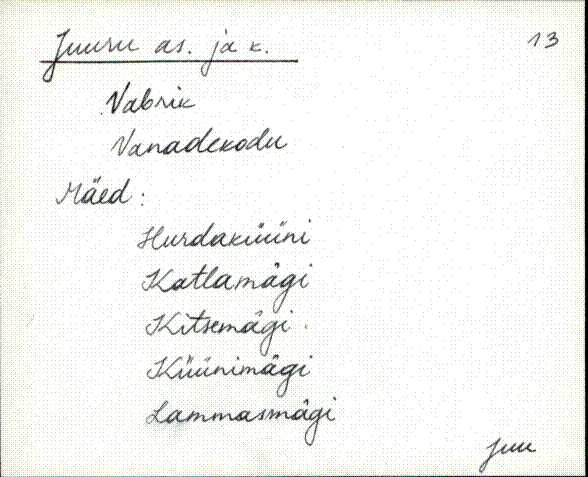 Juuru as. ja k. 13
Vabrik
Vanadekodu
Mäed:
Hurdaküüni
Katlamägi
Kitsemägi
Küünimägi
Lammasmägi
Juu